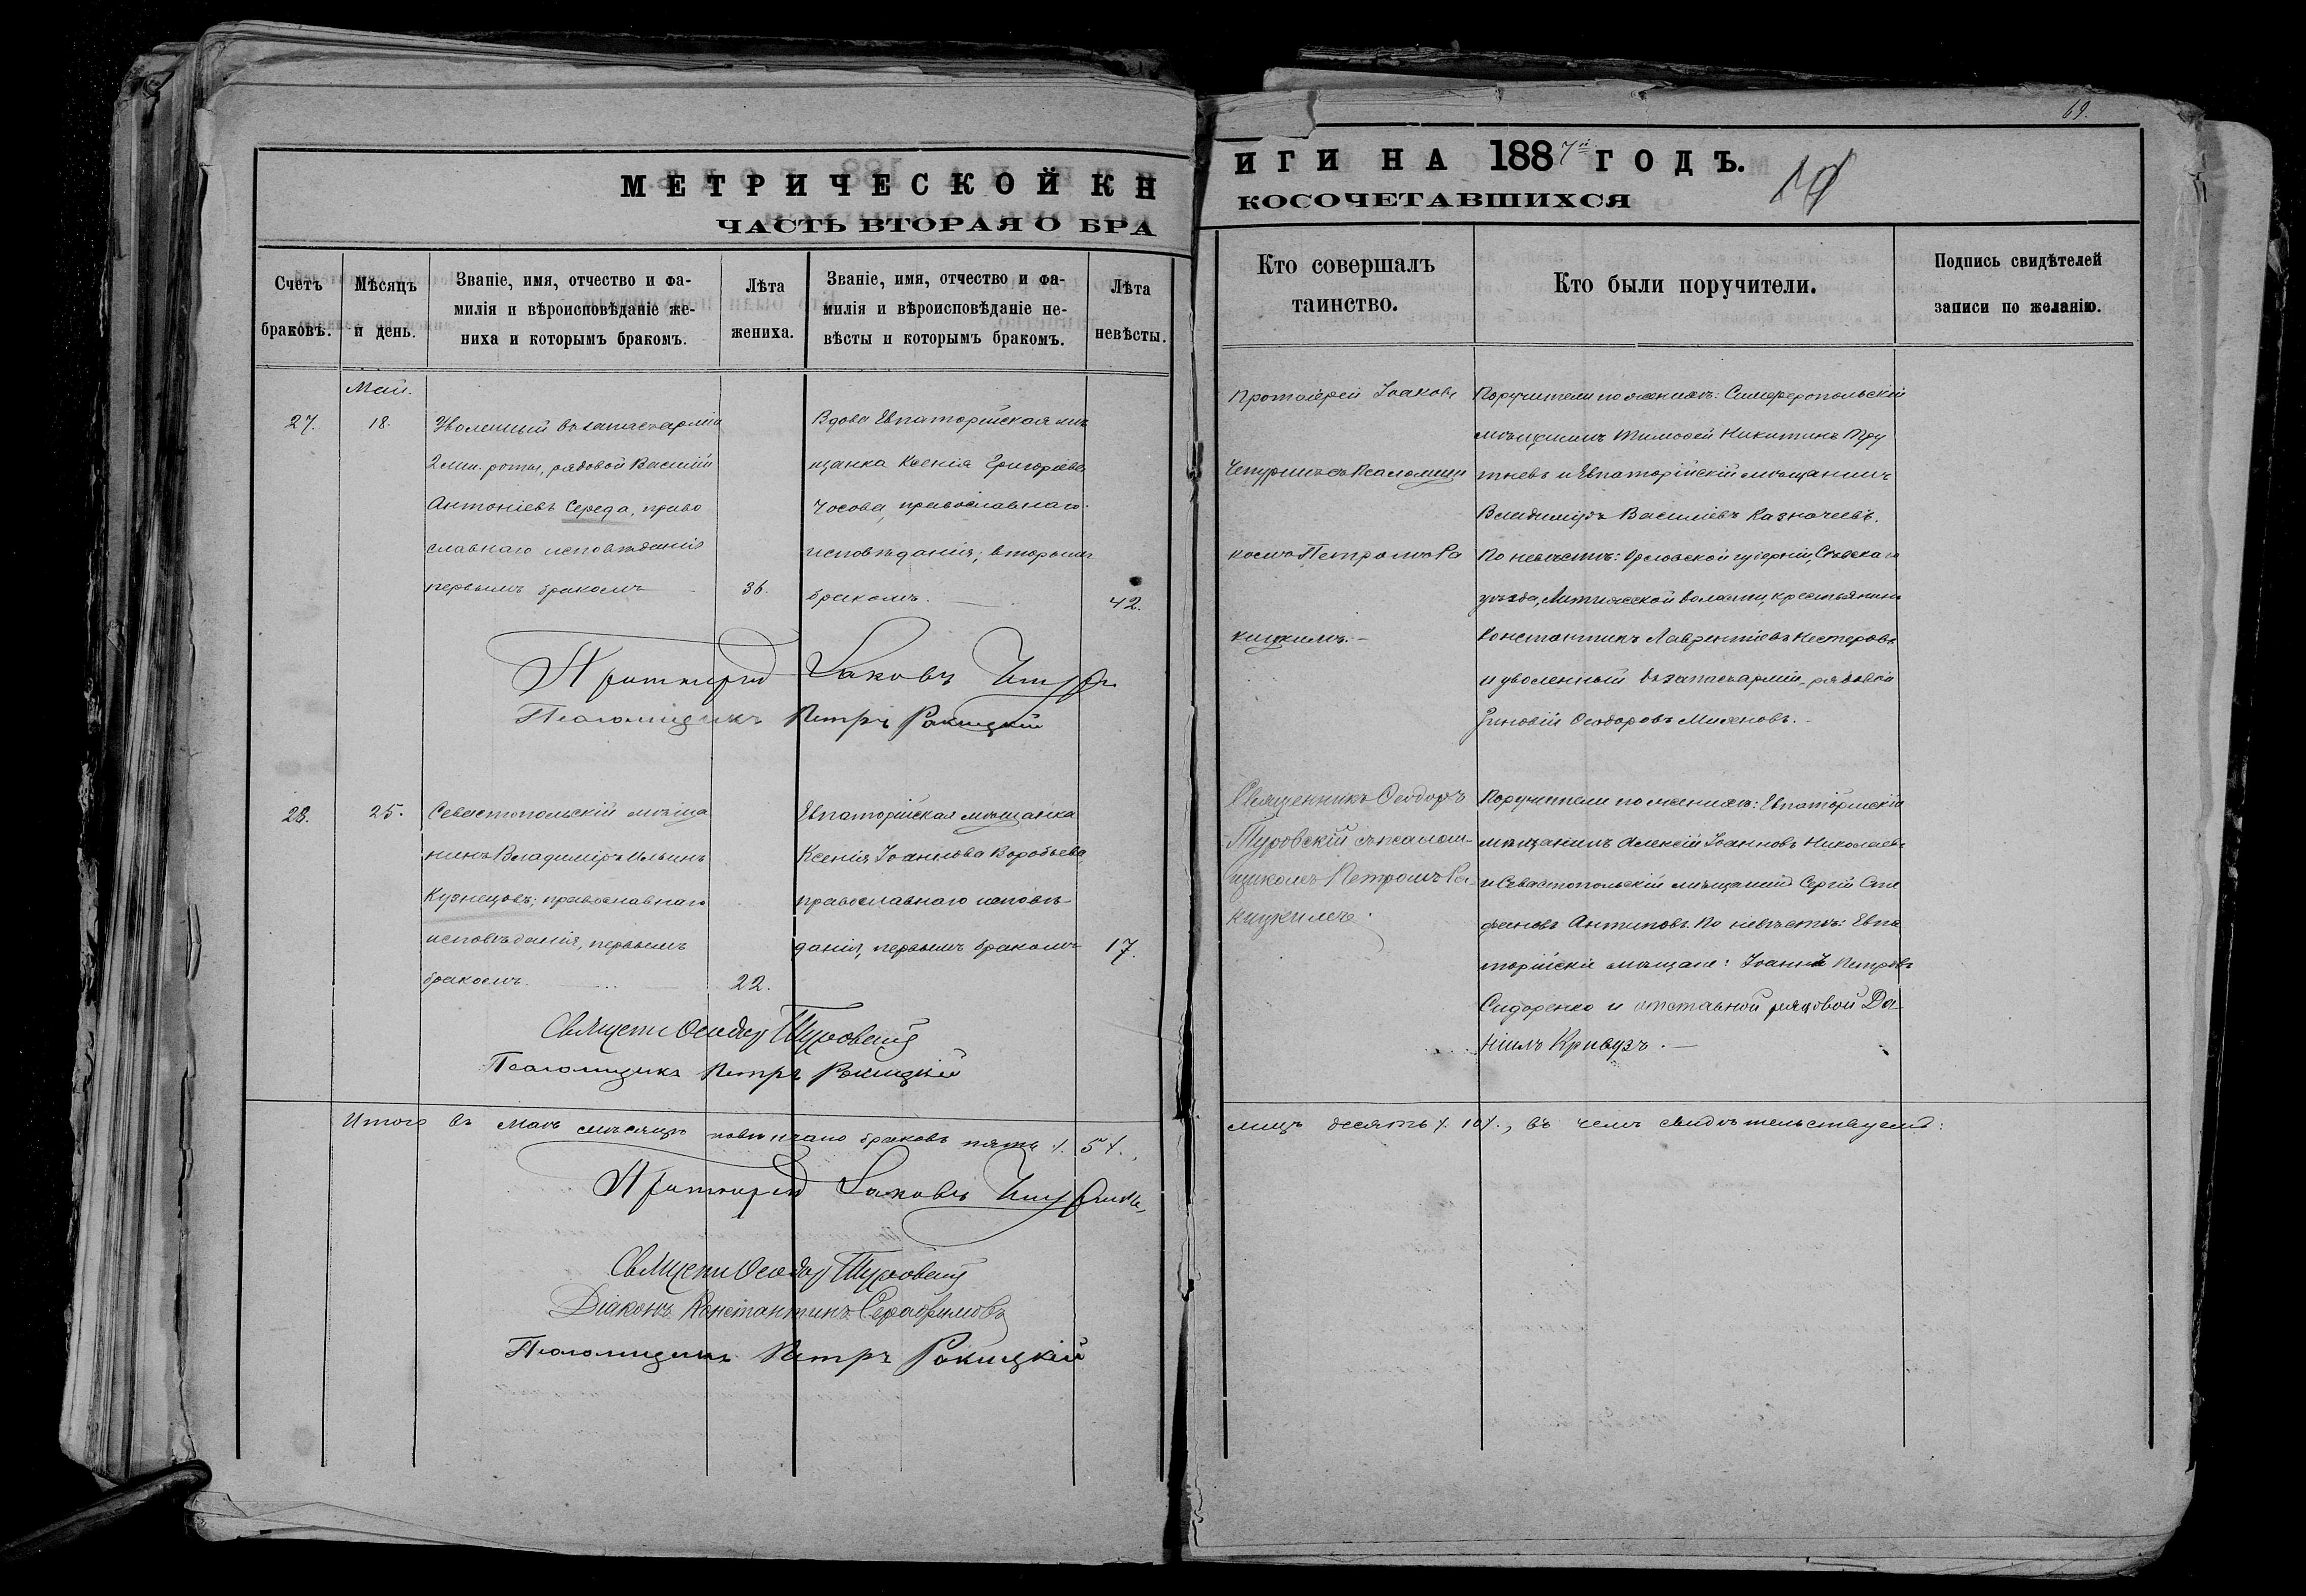 69.
МЕТРИЧЕСКОЙ КНИГИ НА 1887й ГОДЪ.
ЧАСТЬ ВТОРАЯ О БРАКОСОЧЕТАВШИХСЯ
Счетъ браковъ.
Мѣсяцъ и день.
Званіе, имя, отчество и фа-
милія и вѣроисповѣданіе же-
ниха и которымъ бракомъ.
Лѣта жениха.
Званіе, имя, отчество и фа-
милія и вѣроисповѣданіе не-
вѣсты и которымъ бракомъ.
Лѣта невѣсты.
Кто совершалъ
таинство.
Кто были поручители.
Подпись свидѣтелей
записи по желанію.
27.
Май.
18.
Уволенный въ запасъ арміи
роты, рядовой Василій
Антоніевъ Середа, право
славнаго исповѣданія
первымъ бракомъ
36.
Вдова Евпаторійская мѣ
щанка Ксенія Григоріева
Чосова, православнаго
исповѣданія, вторымъ
бракомъ.
42.
Протоіерей Іаковъ
съ Псаломщи
комъ Петромъ Ра
кицкимъ.
Поручители по женихѣ: Симферопольскій
мѣщанинъ Тимофей Никитинъ Тру
тневъ и Евпаторійскій мѣщанинъ
Владиміръ Василіевъ Казначеевъ.
По невѣстѣ: Орловской губерніи, Сѣвскаго
уѣзда, волости, крестьянинъ
Константинъ Лаврентіевъ Нестеровъ
и уволенный въ запасъ арміи рядовой
Зиновій Ѳеодоровъ
Протоіерей Іаковъ
Псаломщикъ Петръ Ракицкій
28.
25.
Севастопольскій мѣща
нинъ Владиміръ Ильинъ
Кузнецовъ, православнаго
исповѣданія, первымъ
бракомъ.
22.
Евпаторійская мѣщанка
Ксенія Іоаннова Воробьева
православнаго исповѣ-
данія, первымъ бракомъ
17.
Священникъ Ѳеодоръ
Туровскій съ псалом-
щикомъ Петромъ Ра-
кицкимъ.
Поручители по женихѣ: Евпаторійскій
мѣщанинъ Алексій Іоанновъ Николаевъ
и Севастопольскій мѣщанинъ Сергій Сте
фановъ Антиповъ. По невѣстѣ: Евпа
торійскіе мѣщане: Іоаннъ Петровъ
Сидоренко и отставной рядовой Да-
ніилъ
Священ Ѳеодор Туровскій
Псаломщикъ Петръ Ракицкій
Итого въ маѣ мѣсяцѣ повѣнчано браковъ пять /. 5 /.,
лицъ десять /. 10 /., въ чемъ свидѣтельствуемъ:
Протоіерей Іаковъ
Священ Ѳеодор Туровскій
Діаконъ Константинъ Серафимовъ
Псаломщикъ Петръ Ракицкій